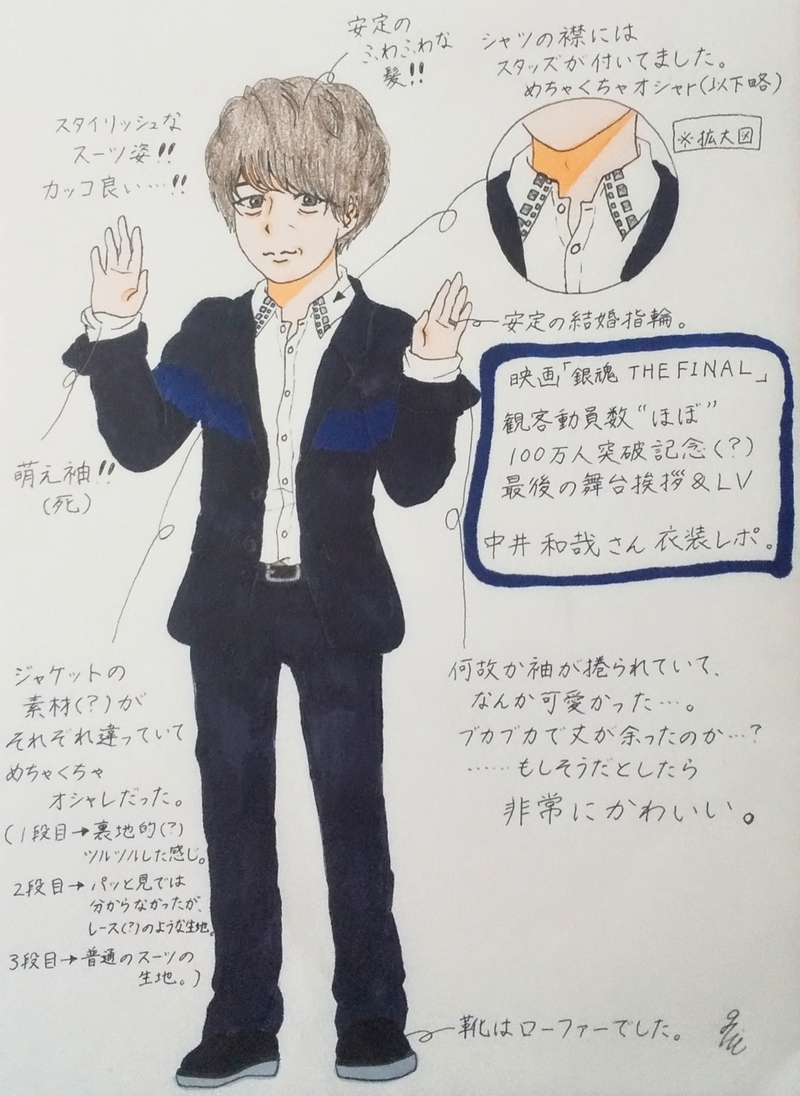 安定の
ふわふわな
髪!!
シャツの襟には
スタッズが付いてました。
めちゃくちゃオシャr(以下略)
※拡大図
スタイリッシュな
スーツ姿!!
カッコ良い…!!
安定の結婚指輪。
映画「銀魂 THE FINAL」
観客動員数"ほぼ"
100万人突破記念(?)
最後の舞台挨拶&LV
中井和哉さん 衣装レポ。
萌え袖!!
(死)
ジャケットの
素材(?)が
それぞれ違っていて
めちゃくちゃ
オシャレだった。
(1段目→裏地的(?)
ツルツルした感じ。
2段目→パッと見では
分からなかったが、
レース(?)のような生地。
3段目→普通のスーツの
生地。)
何故か袖が捲られていて、
なんか可愛かった…。
ブカブカで丈が余ったのか…?
……もしそうだとしたら
非常にかわいい。
靴はローファーでした。